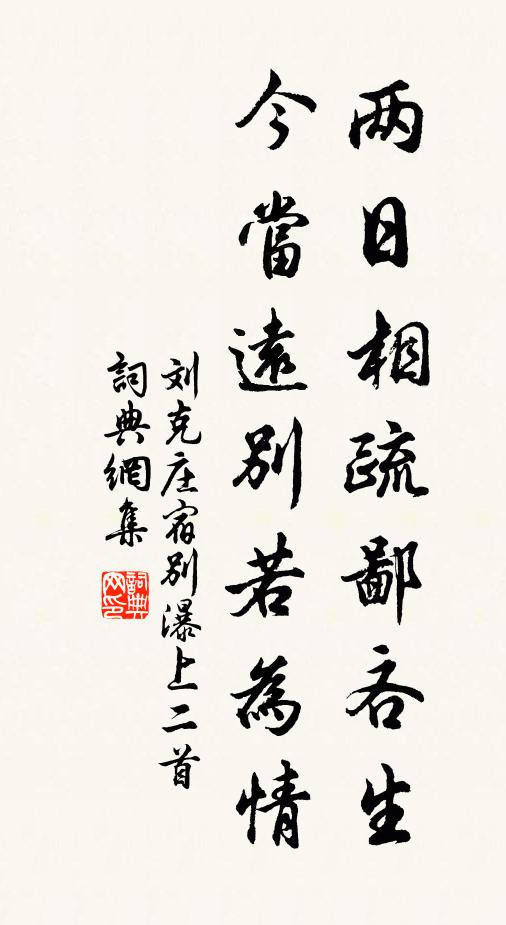 两日相疏鄙吝生
今當遠別若為情
刘克庄宿别瀑上二首
詞典網集
詞典网印